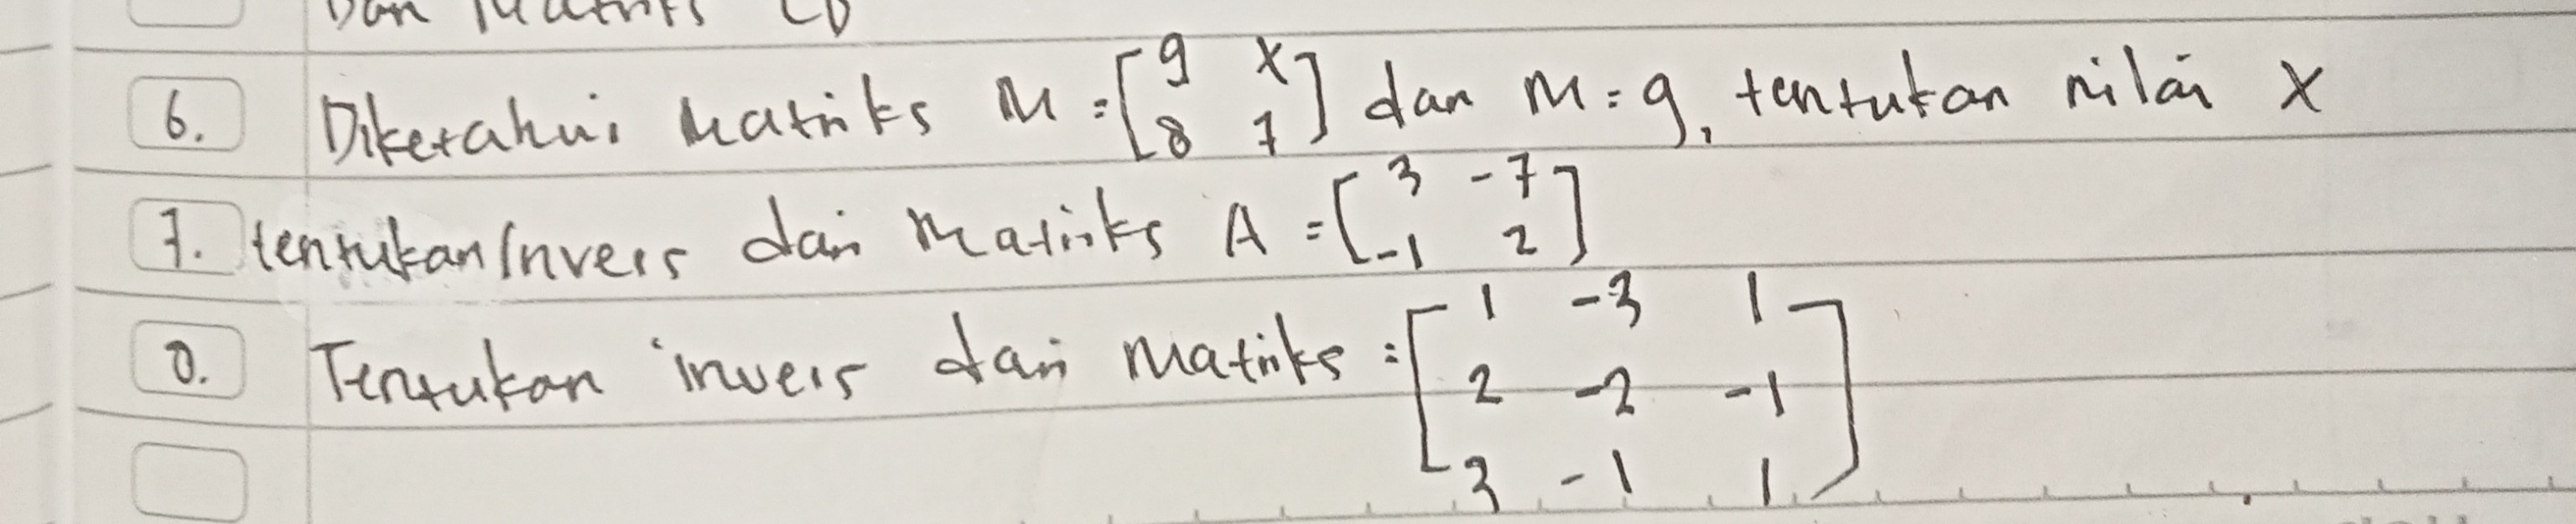 Dan Matriks CD
6. Diketahui Matriks M = [9 x
8 7] dan M = 9, tentukan nilai x
7. tentukan Invers dari Matriks A = [3 -7
-1 2]
8. Tentukan invers dari Matriks = [1 -3 1
2 -2 -1
3 -1 1]